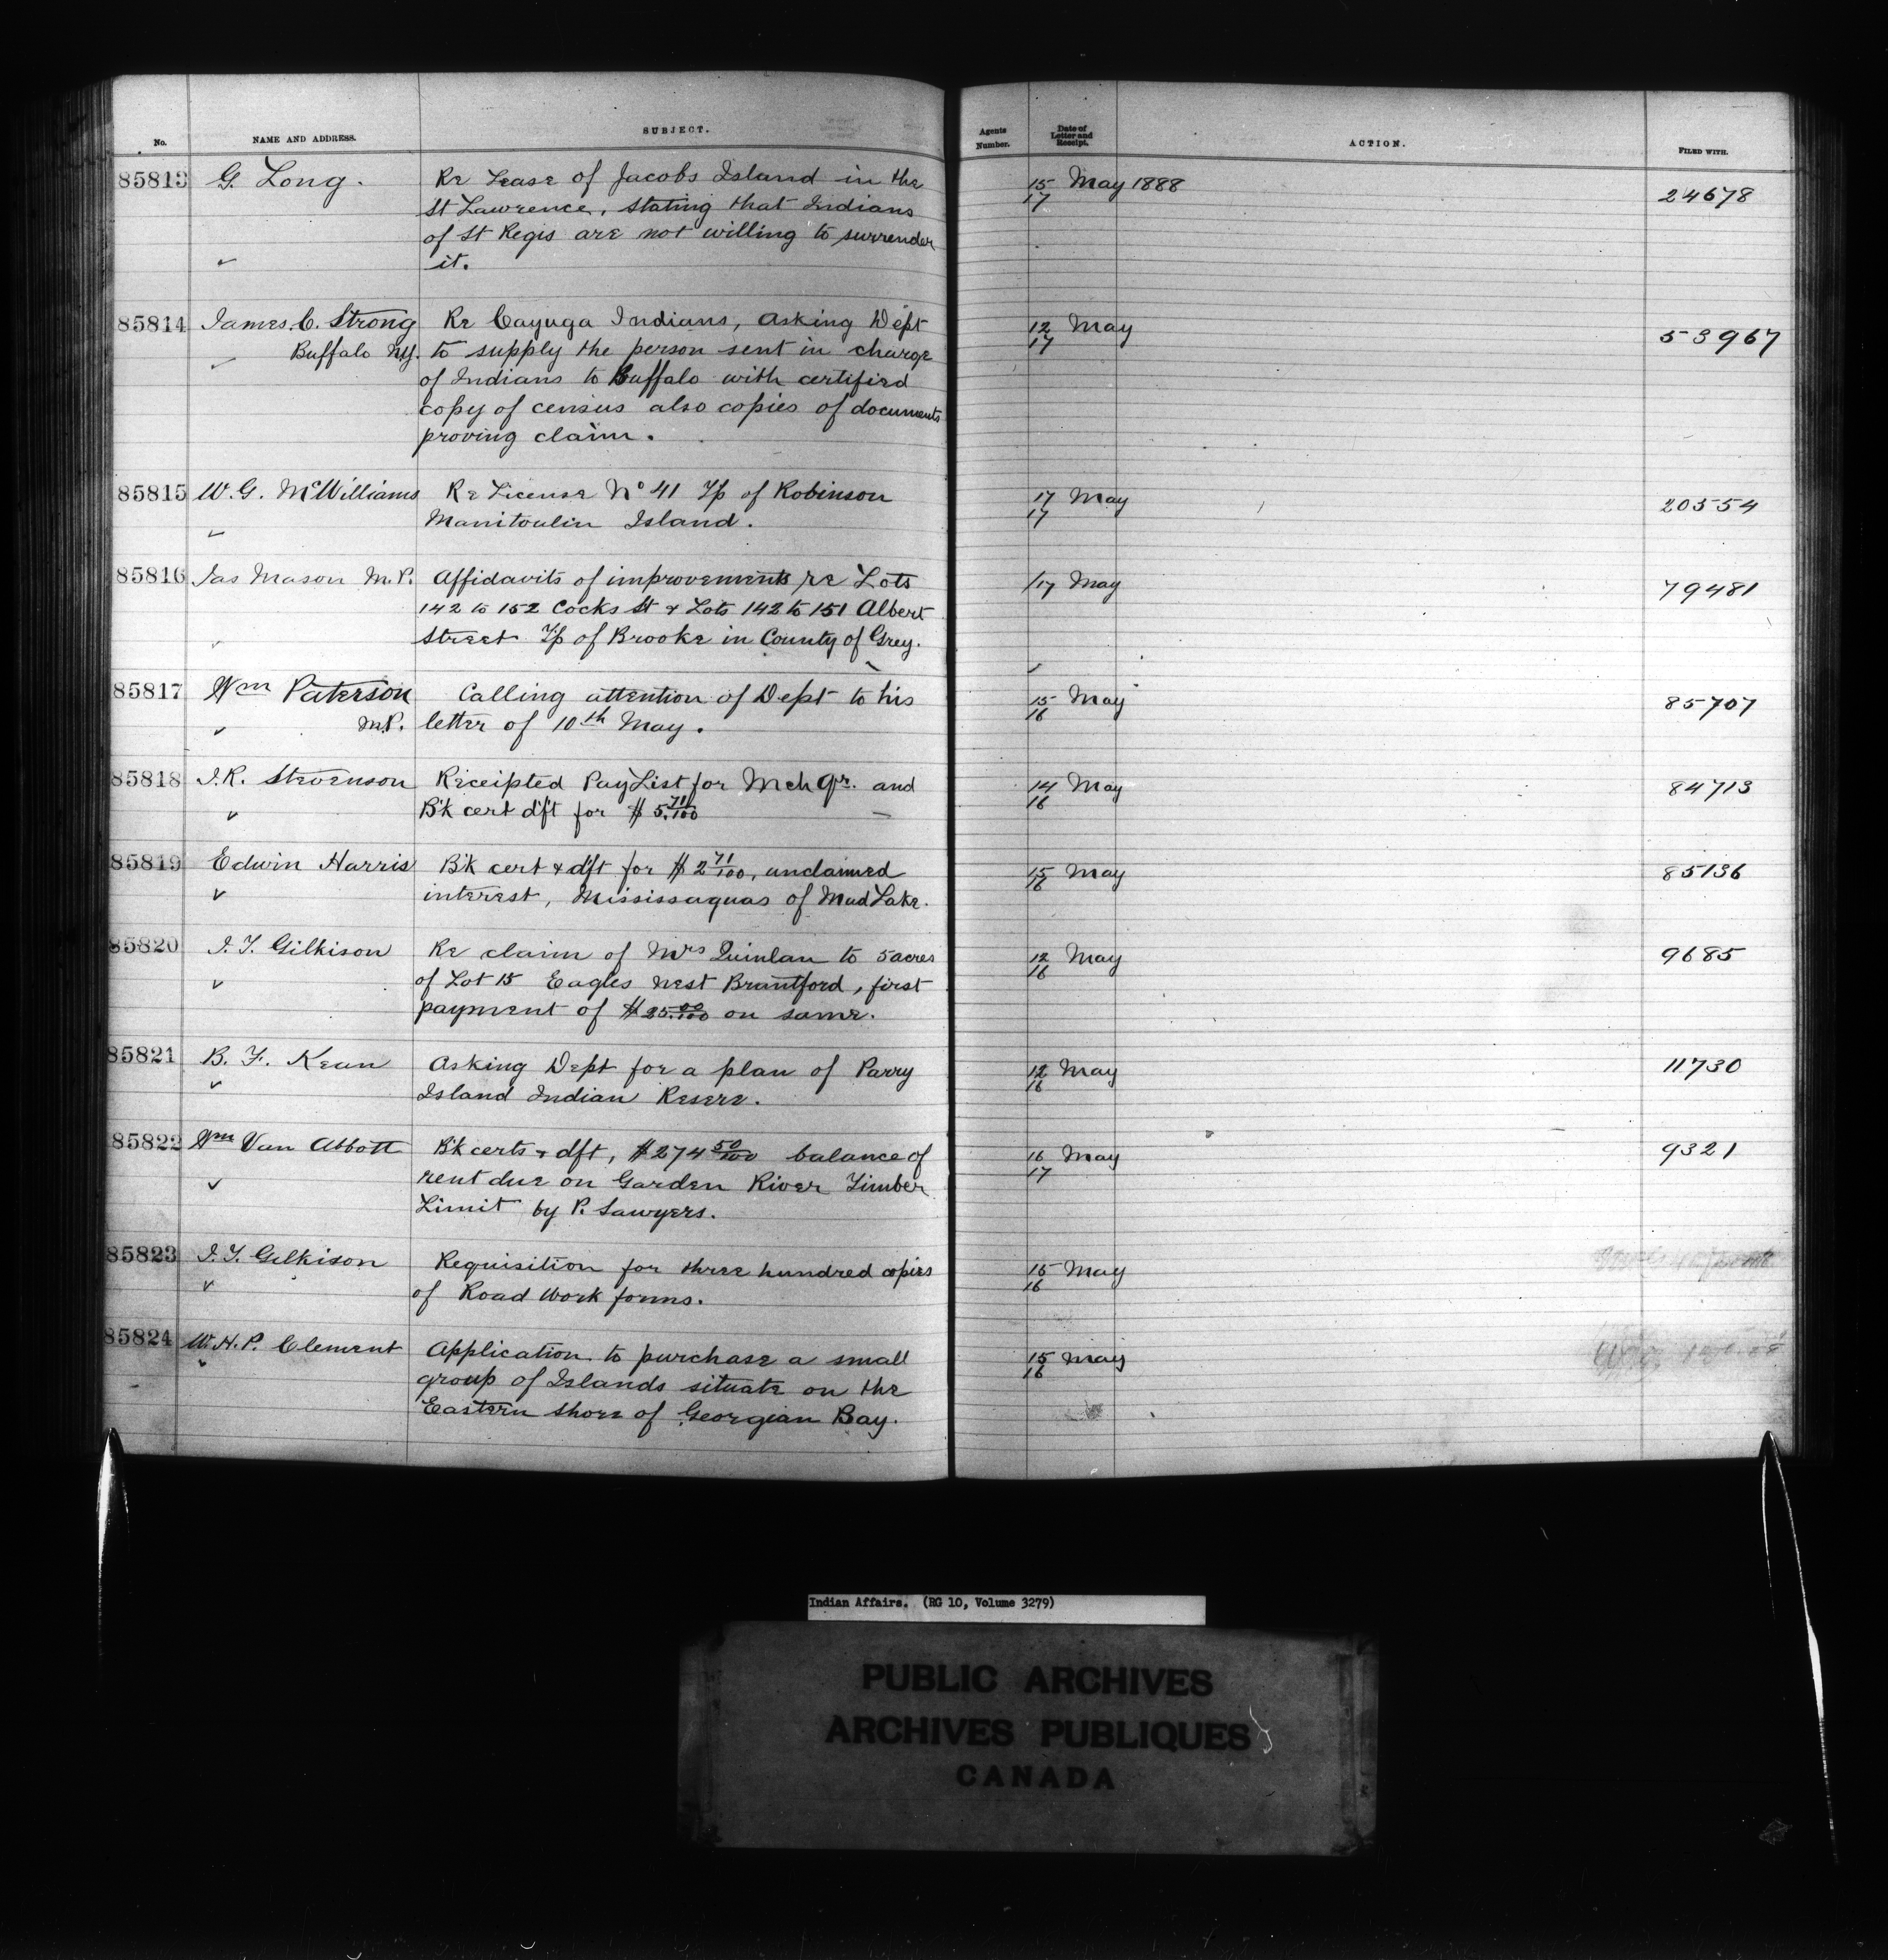 No. NAME AND ADDRESS. SUBJECT. Agents Number. Date of Letter and Receipt. ACTION. FILED WITH.
85813 G. Long. Re Lease of Jacobs Island in the 15/17 May 1888 24678
St Lawrence, stating that Indians
of St Regis are not willing to surrender
it.
85814 James. C. Strong Re Cayuga Indians, asking Dept 12/17 May 53967
Buffalo N.Y. to supply the person sent in charge
of Indians to Buffalo with certified
copy of census also copies of documents
proving claim.
85815 W. G. McWilliams Re License No 41 Tp of Robinson 17/17 May 20554
Manitoulin Island.
85816 Jas Mason M.P. Affidavits of improvements re Lots /17 May 79481
142 to 152 Cocks St & Lots 142 to 151 Albert
Street Tp of Brooke in County of Grey.
85817 Wm Paterson Calling attention of Dept to his 15/16 May 85707
M.P. letter of 10th May.
85818 J. R. Stevenson Receipted Pay List for Mch Qr. and 14/16 May 84713
B'k cert d'ft for $5.71/100
85819 Edwin Harris B'k cert & d'ft for $2 71/100, unclaimed 15/16 May 85136
interest, Mississaguas of Mud Lake.
85820 J. T. Gilkison Re claim of Mrs Quinlan to 5 acres 12/16 May 9685
of Lot 15 Eagles nest Brantford, first
payment of $25.00/100 on same.
85821 B. F. Kean Asking Dept for a plan of Parry 12/16 May 11730
Island Indian Reserve.
85822 Wm Van Abbott B'k certs & dft, $274 50/100 balance of 16/17 May 9321
rent due on Garden River Timber
Limit by P. Sawyers.
85823 J. T. Gilkison Requisition for three hundred copies 15/16 May
of Road Work forms.
85824 W. H. P. Clement Application to purchase a small 15/16 May
group of Islands situate on the
Eastern shore of Georgian Bay.
Indian Affairs. (RG 10, Volume 3279)
PUBLIC ARCHIVES
ARCHIVES PUBLIQUES
CANADA